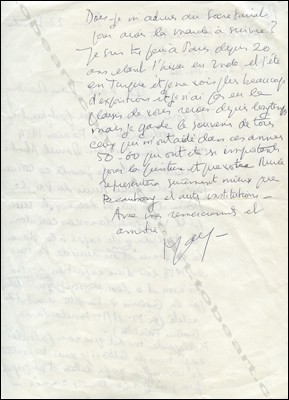 Dois je m'adresser au Secrétariat
pour avoir la marche à suivre ?
Je suis très peu à Paris depuis 20
ans étant l'hiver en Inde et l'été
en Turquie et je ne vois plus beaucoup
d'expositions et je n'ai pas eu le
plaisir de vous revoir depuis longtemps
mais je garde le souvenir de tous
ceux qui m'ont aidé dans ces années
50-60 qui ont été si importantes
pour la peinture et que votre Musée
représentera sûrement mieux que
Beaubourg et autres institutions –
Avec mes remerciements et
amitiés